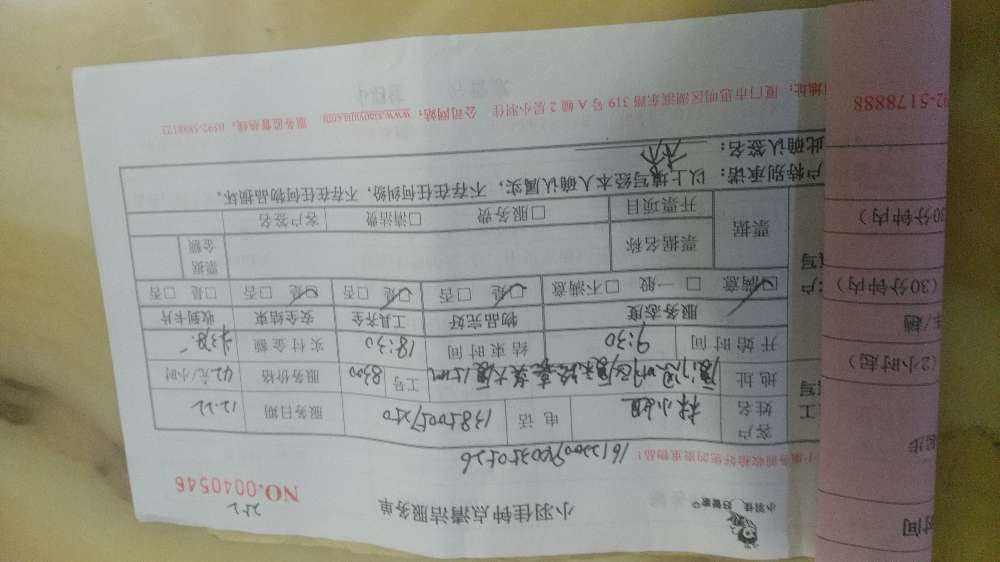 小羽佳 好管家
小羽佳钟点清洁服务单
NO.0040546
服务前收捡好您的贵重物品!
客户姓名 林小姐 电话 服务日期 12.22
地址 工号 8300 服务价格 42元/小时
开始时间 9:30 结束时间 18:30 实付金额 378.
服务态度 物品完好 工具齐全 安全结束 收到卡片
☑满意 □一般 □不满意 ☑是 □否 ☑是 □否 ☑是 □否 □是 □否
票据 票据名称 票据金额
开票项目 □服务费 □清洁费 客户签名
户特别承诺:以上填写经本人确认属实,不存在任何纠纷,不存在任何物品损坏。
此确认签名:林
地址:厦门市思明区湖滨东路 319 号 A 幢 2 层小羽佳 公司网站:www.xiaoyujia.com 服务监督热线:0592-5888123
时间
(2小时起)
(30分钟内)
(30分钟内)
92-5178888